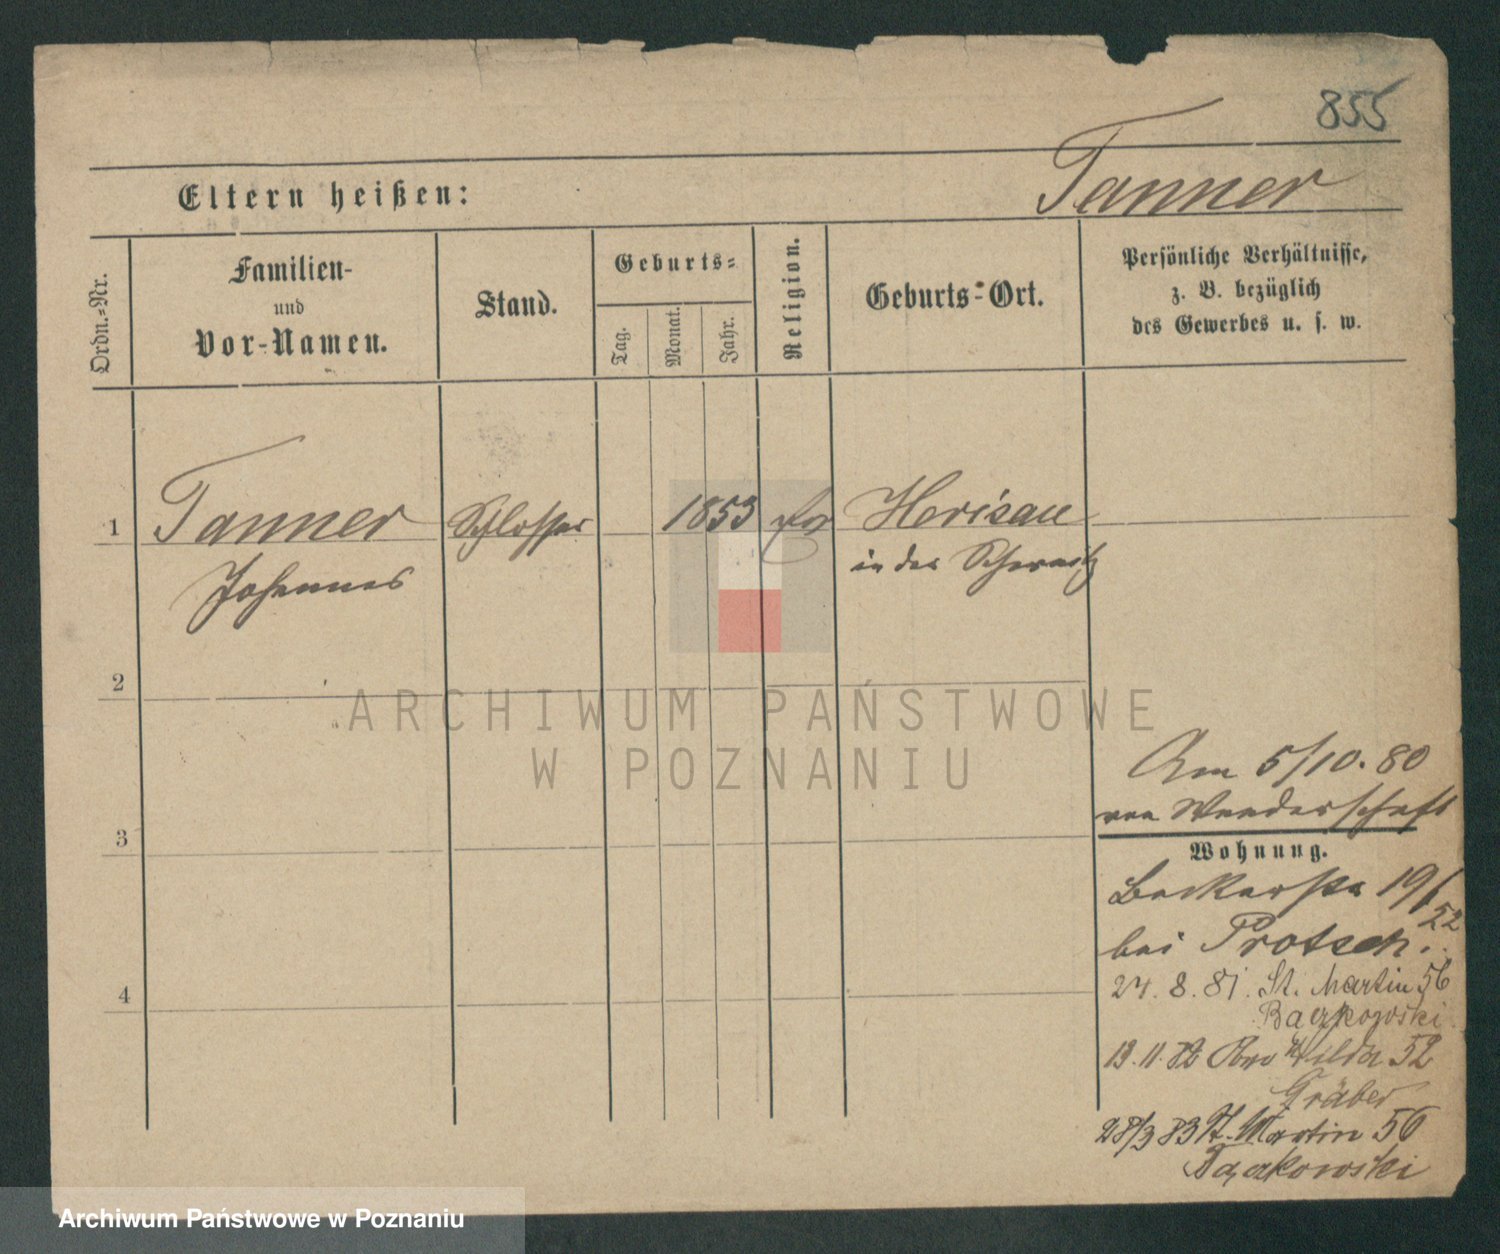 855
Tanner
Eltern heißen:
Ordn.=Nr.
Familien-
und
Vor-Namen.
Stand.
Geburts=
Tag.
Monat.
Jahr.
Religion.
Geburts=Ort.
Persönliche Verhältnisse,
z. B. bezüglich
des Gewerbes u. s. w.
1
Tanner
Johannes
Schlosser
1853
Herisau
in der Schweitz
2
3
4
Am 5/10.80
von Wanderschaft
Wohnung.
Beckerstr 19/
52
bei Protsch.
24.8.81. St. Martin 56
Baczkowski
13.11.82 Wilda 52
Gräber
28/3 83 St. Martin 56
Baczkowski
ARCHIWUM PAŃSTWOWE
W POZNANIU
Archiwum Państwowe w Poznaniu